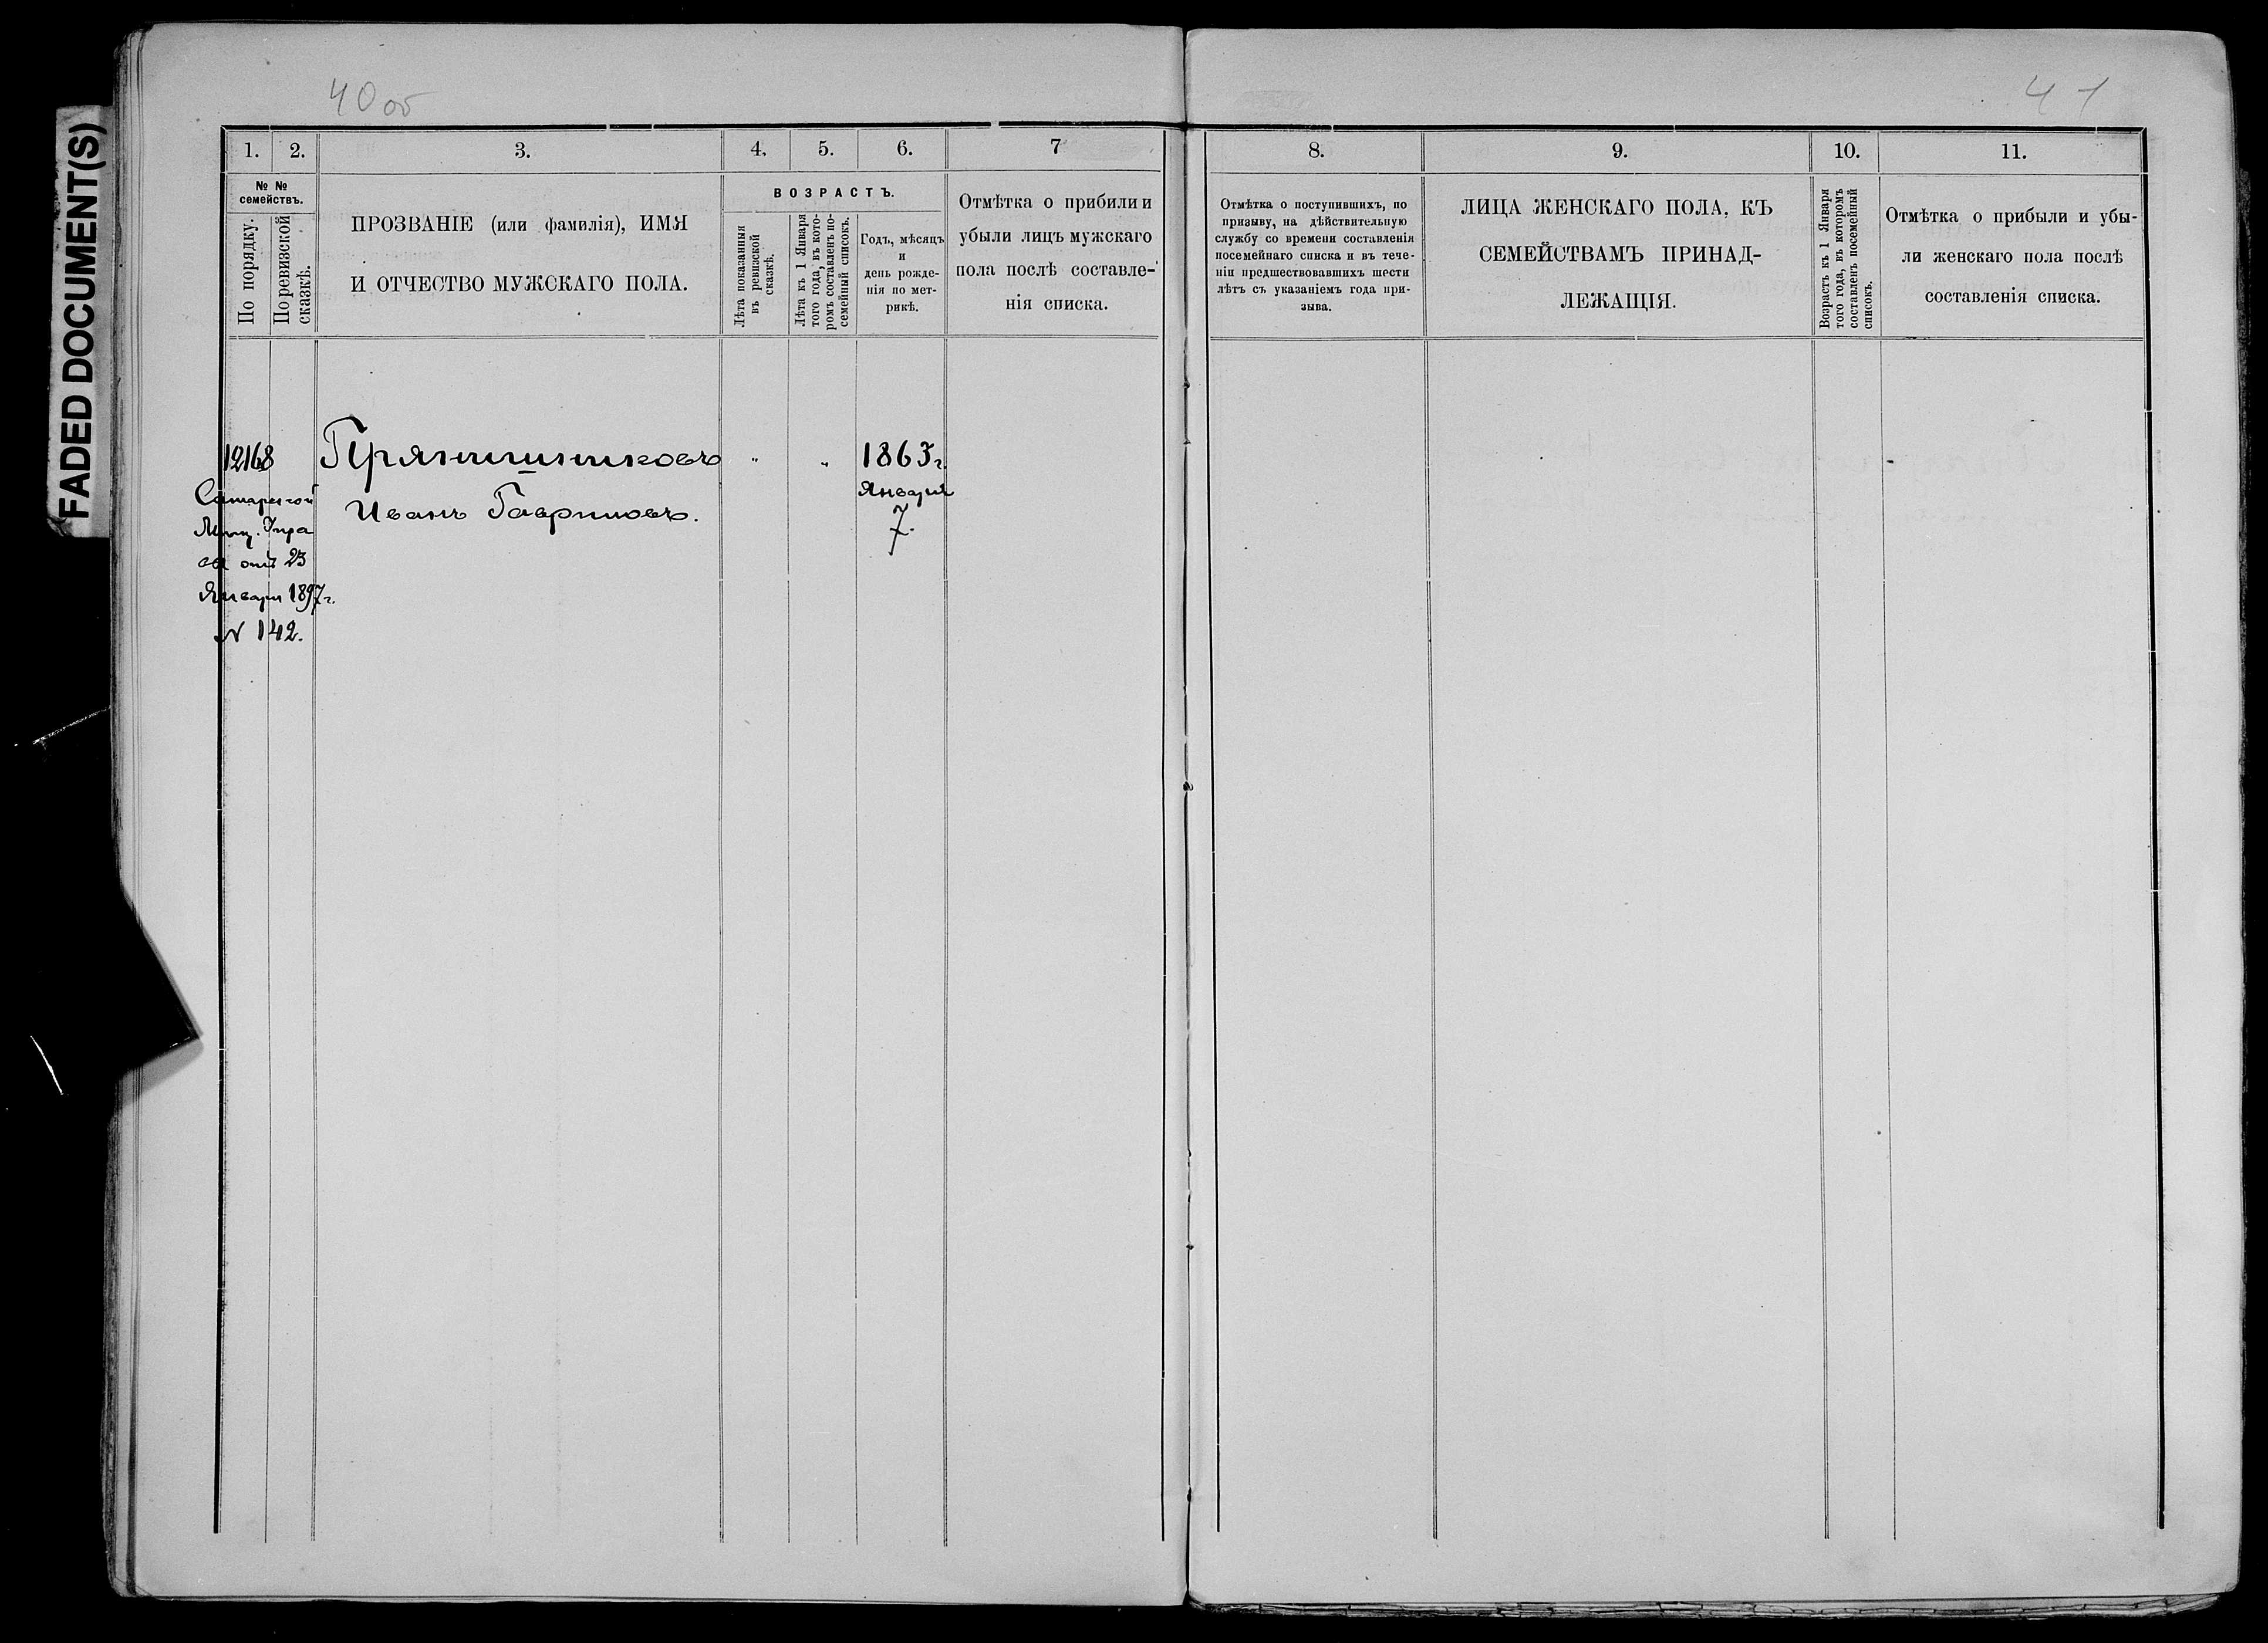 FADED DOCUMENT(S)
40 об
41
1.
2.
3.
4.
5.
6.
7
8.
9.
10.
11.
№ №
семействъ.
По порядку.
По ревизской
сказкѣ.
ПРОЗВАНІЕ (или фамилія), ИМЯ
И ОТЧЕСТВО МУЖСКАГО ПОЛА.
ВОЗРАСТЪ.
Лѣта показанныя
въ ревизской
сказкѣ.
Лѣта къ 1 Января
того года, въ кото-
ромъ составленъ по-
семейный списокъ.
Годъ, мѣсяцъ
и
день рожде-
нія по мет-
рикѣ.
Отмѣтка о прибили и
убыли лицъ мужскаго
пола послѣ составле-
нія списка.
Отмѣтка о поступившихъ, по
призыву, на дѣйствительную
службу со времени составленія
посемейнаго списка и въ тече-
ніи предшествовавшихъ шести
лѣтъ съ указаніемъ года при-
зыва.
ЛИЦА ЖЕНСКАГО ПОЛА, КЪ
СЕМЕЙСТВАМЪ ПРИНАД-
ЛЕЖАЩІЯ.
Возрастъ къ 1 Января
того года, въ которомъ
составленъ посемейный
списокъ.
Отмѣтка о прибыли и убы-
ли женскаго пола послѣ
составленія списка.
12168
Прянишниковъ
"
"
1863 г.
Самарской
Января
Мѣщ. Упра
Иванъ Гавриловъ.
7.
вы отъ 23
Января 1897 г.
№ 142.